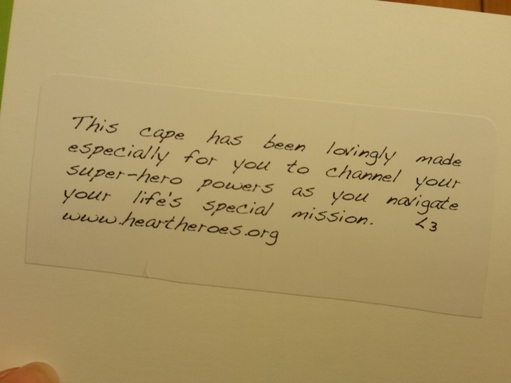 This cape has been lovingly made
especially for you to channel your
super-hero powers as you navigate
your life's special mission. <3
www.heartheroes.org